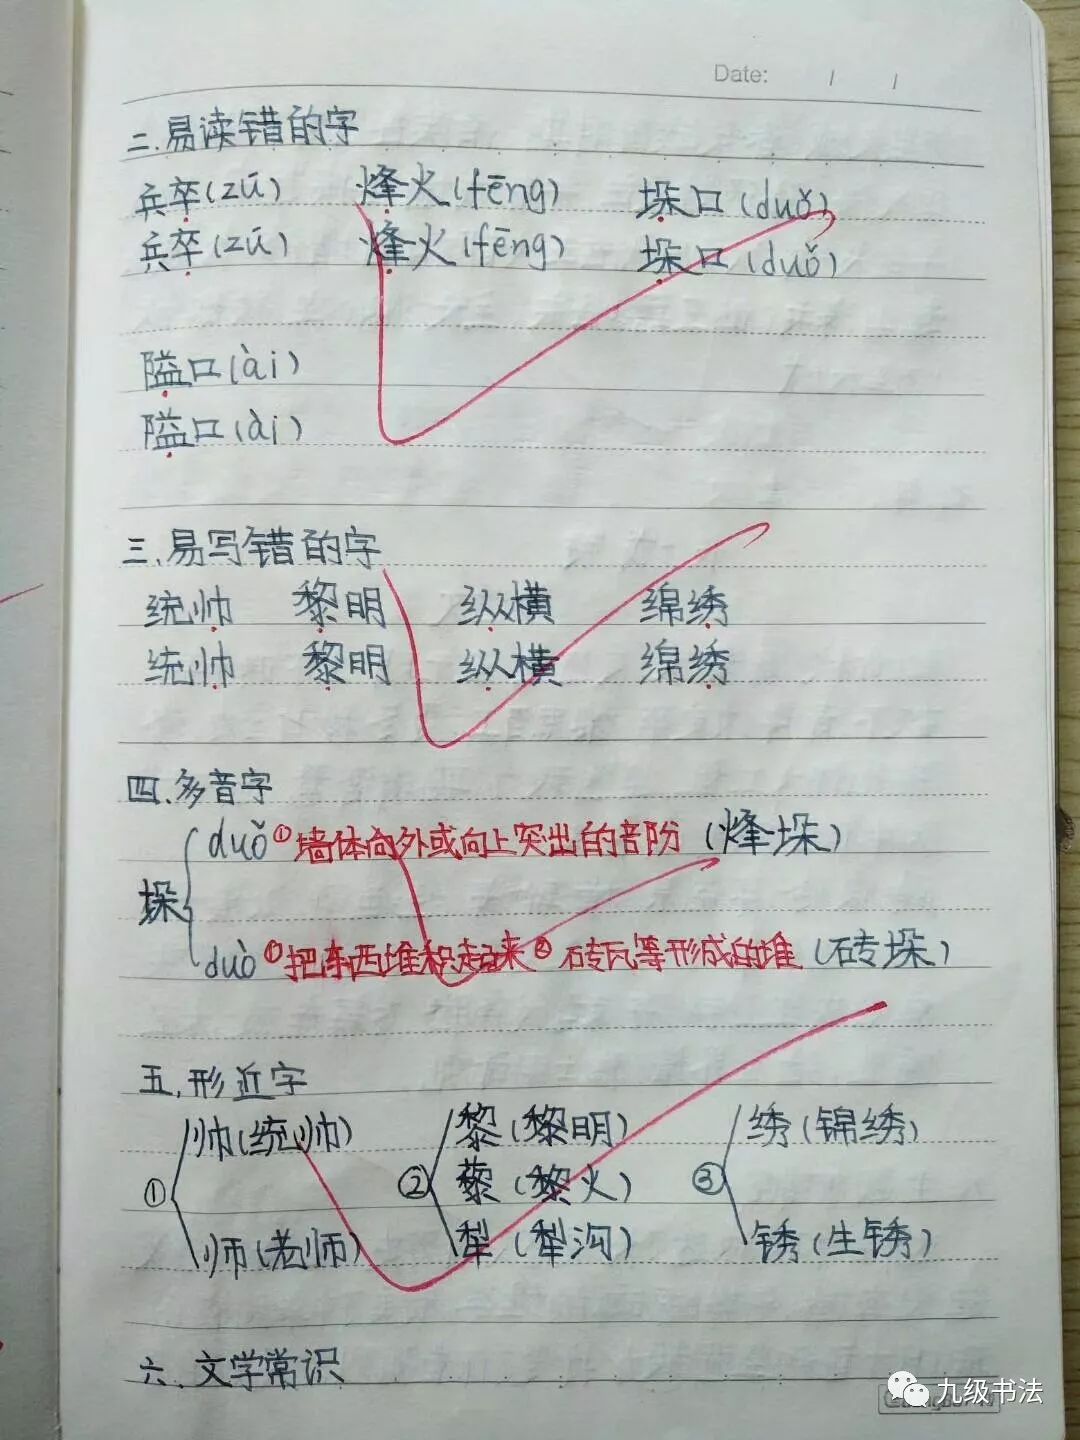 Date: / /
二.易读错的字
兵卒(zú) 烽火(fēng) 垛口(duǒ)
兵卒(zú) 烽火(fēng) 垛口(duǒ)
隘口(ài)
隘口(ài)
三.易写错的字
统帅 黎明 纵横 绵绣
统帅 黎明 纵横 绵绣
四.多音字
垛
duǒ ①墙体向外或向上突出的部份 (烽垛)
duò ①把东西堆积起来 ② 砖瓦等形成的堆 (砖垛)
五.形近字
① 帅(统帅) 师(老师)
② 黎(黎明) 藜(藜火) 犁(犁沟)
③ 绣(锦绣) 锈(生锈)
六.文学常识
九级书法